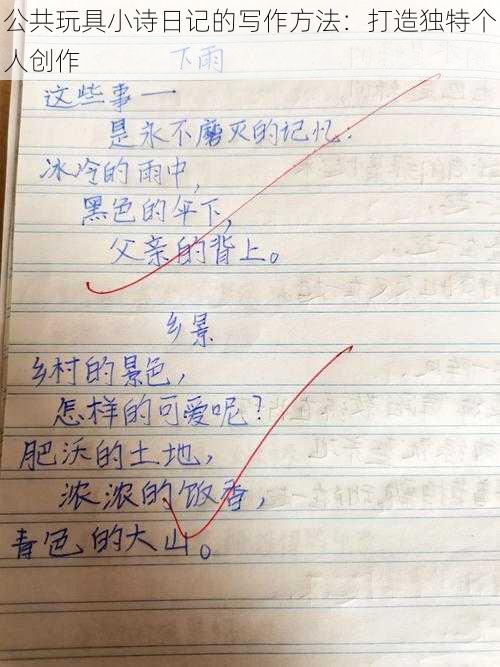 公共玩具小诗日记的写作方法：打造独特个
人创作
下雨
这些事一
是永不磨灭的记忆：
冰冷的雨中，
黑色的伞下，
父亲的背上。
乡景
乡村的景色，
怎样的可爱呢？
肥沃的土地，
浓浓的饭香，
青色的大山。